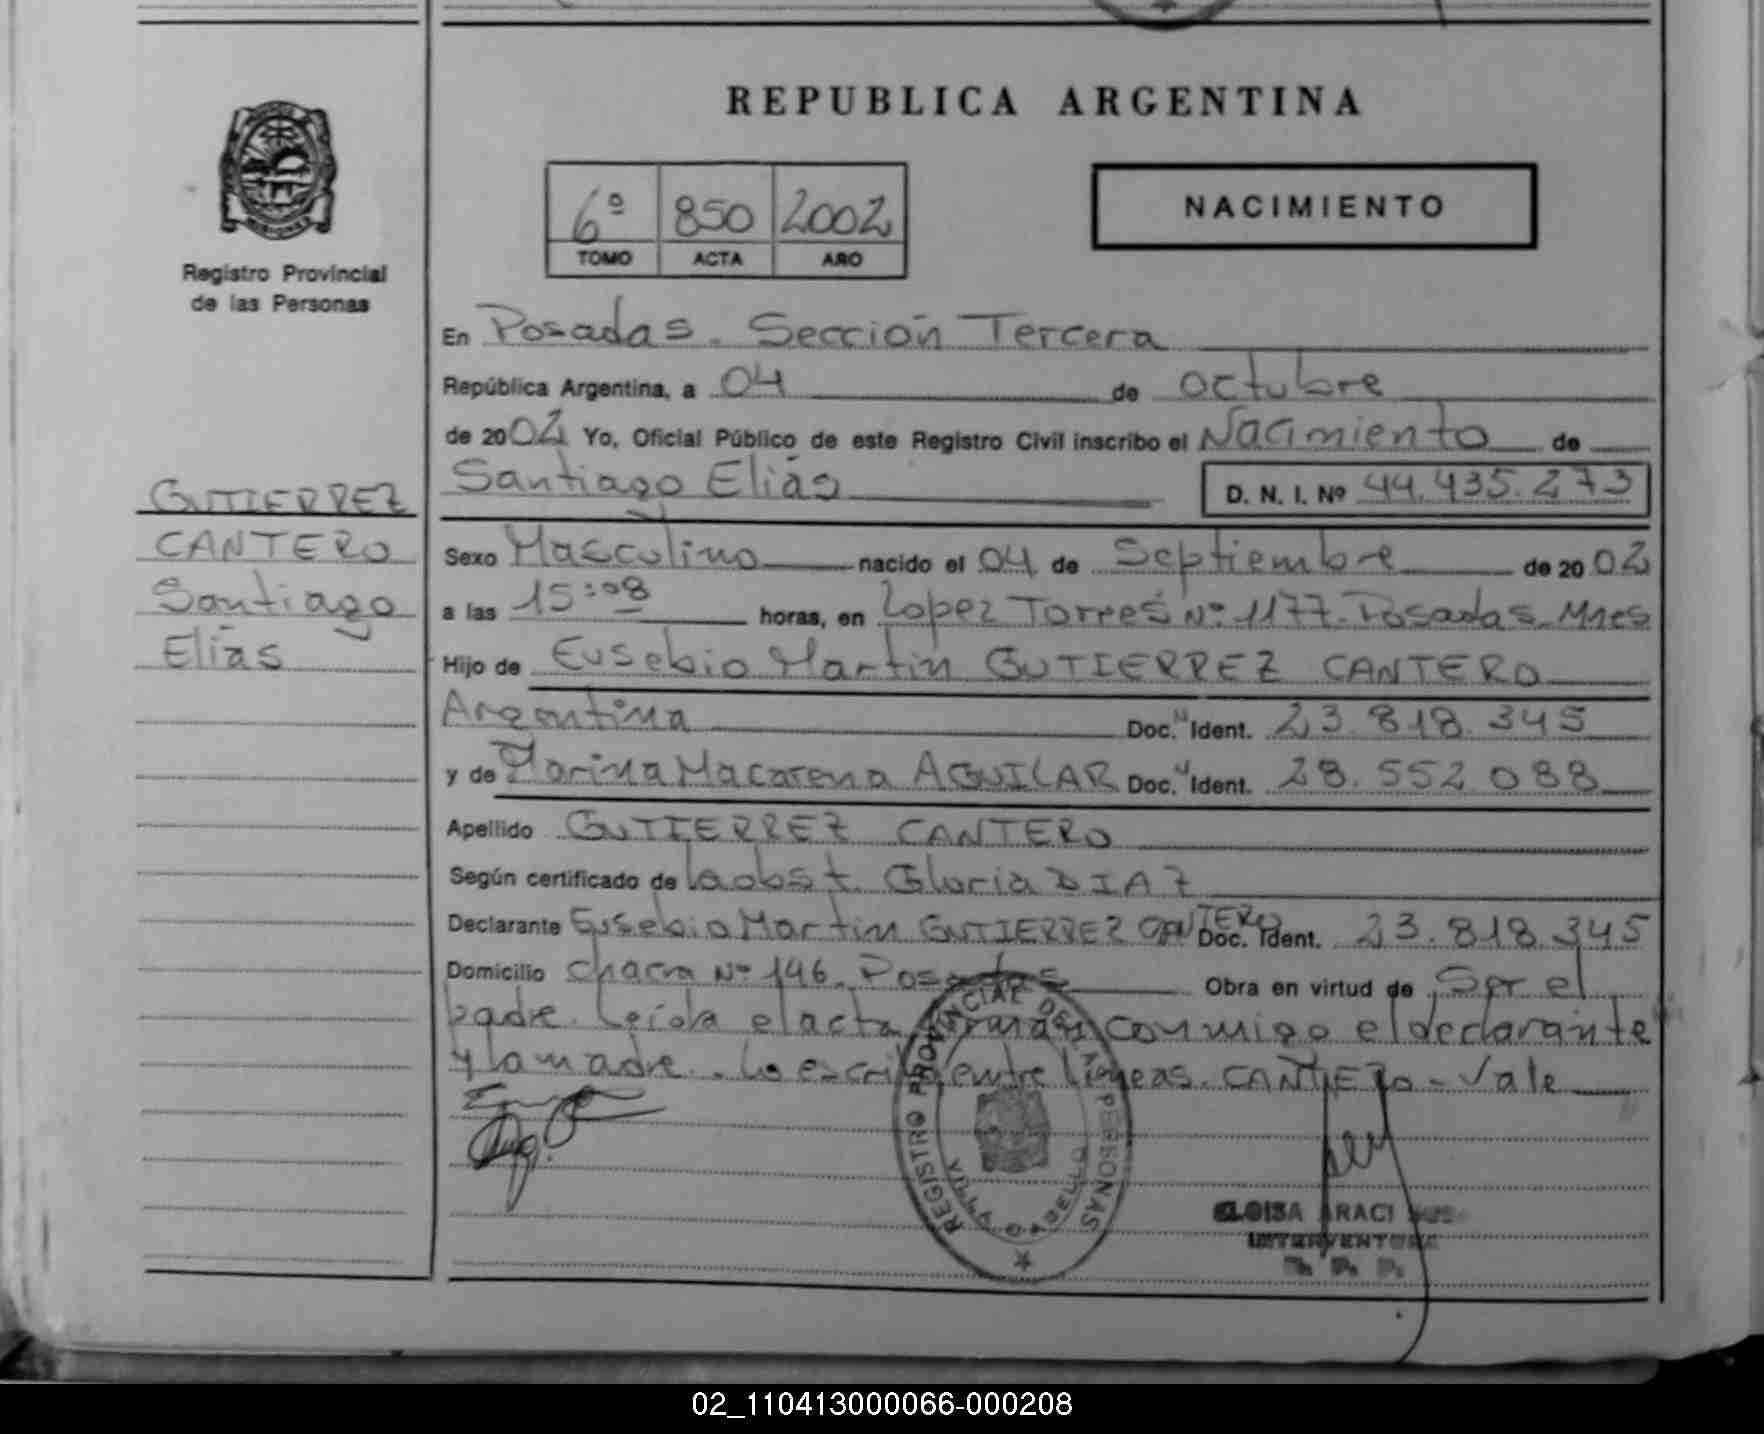 REPUBLICA ARGENTINA
6º 850 2002
TOMO ACTA AÑO
NACIMIENTO
Registro Provincial
de las Personas
En Posadas. Sección Tercera
República Argentina, a 04 de octubre
de 2002 Yo, Oficial Público de este Registro Civil inscribo el Nacimiento de
Santiago Elías D. N. I. Nº 44.435.273
GUTIERREZ
CANTERO
Santiago
Elías
Sexo Masculino nacido el 04 de Septiembre de 2002
a las 15:08 horas, en Lopez Torres Nº 1177. Posadas. Mnes
Hijo de Eusebio Martin GUTIERREZ CANTERO
Argentina Doc. Ident. 23.818.345
y de Marina Macarena AGUILAR Doc. Ident. 28.552.088
Apellido GUTIERREZ CANTERO
Según certificado de la obst. Gloria DIAZ
Declarante Eusebio Martin GUTIERREZ CANTERO Doc. Ident. 23.818.345
Domicilio chacra Nº 146. Posadas Obra en virtud de Ser el
padre. Leída el acta firman conmigo el declarante
y la madre. Lo escrito entre líneas. CANTERO - Vale
REGISTRO PROVINCIAL DE LAS PERSONAS
VILLA CABELLO
ELOISA ARACI
INTERVENTORA
R. P. P.
02_110413000066-000208